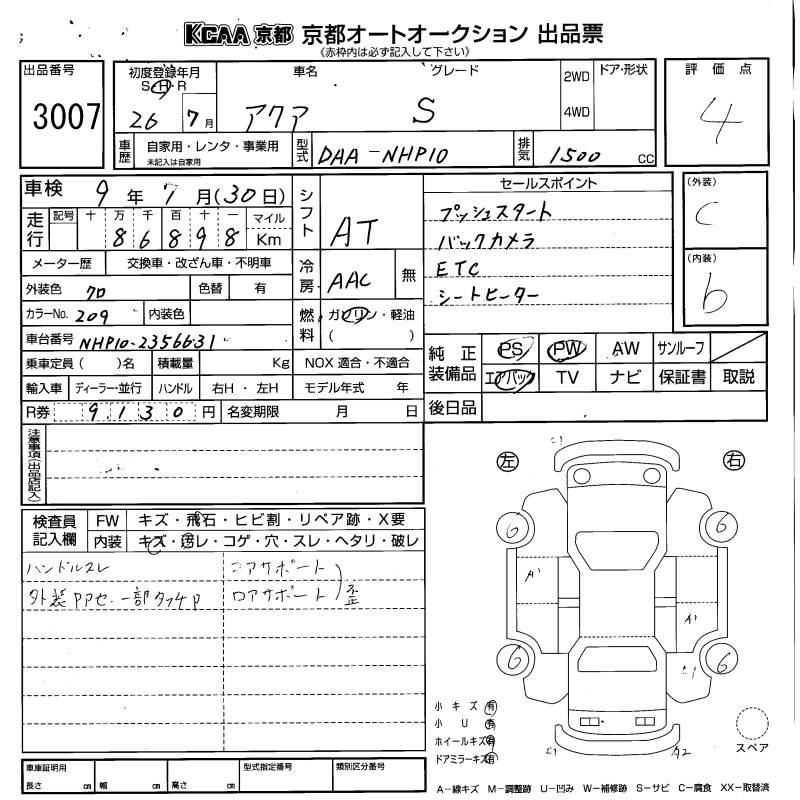 KCAA 京都 京都オートオークション 出品票
《赤枠内は必ず記入して下さい》
出品番号 3007
初度登録年月 S・H・R 26 7月
車名 アクア
グレード S
2WD 4WD
ドア・形状
評価点 4
車歴 自家用・レンタ・事業用 未記入は自家用
型式 DAA-NHP10
排気 1500 CC
車検 9年7月(30日)
シフト AT
セールスポイント
プッシュスタート
バックカメラ
ETC
シートヒーター
(外装) C
(内装) b
走行 記号 十 万 千 百 十 一 マイル Km
8 6 8 9 8
メーター歴 交換車・改ざん車・不明車
冷房 AAC 無
外装色 クロ 色替 有
カラーNo. 209 内装色
燃料 ガソリン・軽油 ( )
車台番号 NHP10-2356631
乗車定員 ( )名 積載量 Kg NOX 適合・不適合
純正装備品 PS PW AW サンルーフ
エアバック TV ナビ 保証書 取説
輸入車 ディーラー・並行 ハンドル 右H・左H モデル年式 年
R券 9130円 名変期限 月 日
後日品
注意事項(出品店記入)
検査員記入欄
FW キズ・飛石・ヒビ割・リペア跡・X要
内装 キズ・汚レ・コゲ・穴・スレ・ヘタリ・破レ
ハンドルスレ コアサポート
外装PアセP一部タッチP ロアサポート 歪
左 右
6 6
A' A'
6 6
小キズ 有
小U 有
ホイールキズ 有
ドアミラーキズ 有
A2
スペア
車庫証明用 長さ cm 幅 cm 高さ cm
型式指定番号
類別区分番号
A-線キズ M-調整跡 U-凹み W-補修跡 S-サビ C-腐食 XX-取替済